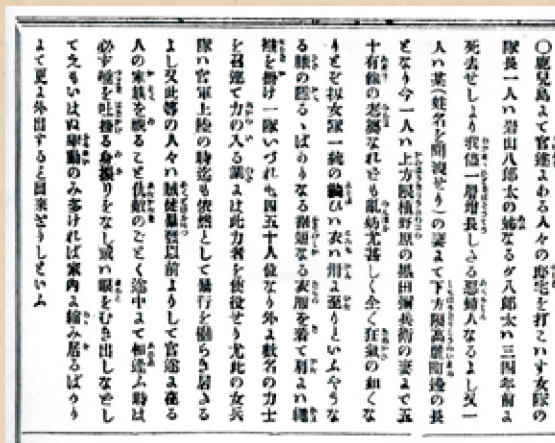 〇鹿兒島よて官途よある人々の邸宅を打こハす女隊の
隊長一人ハ岩山八郎太の姉なるが八郎太ハ三四年前よ
死去せしより我儘一層増長しさる惡婦人なるよし又一
人ハ某(姓名を聞洩せり)の妻よて下方限高麗町邊の長
となり今一人ハ上方限植野原の黒田彌兵衛の妻よて五
十有餘の老婆なれども亂妨尤甚しく全く狂氣の如くな
りとぞ扨女隊一統の ハ衣ハ 至りといふやうな
る膝の隠るゝばかりなる 衣服を着て肩よハ襷
を掛け一隊いづれも四五十人位なり外よ數名の力士
を召連て力の入る業よは此力者を使役せり尤此の女兵
隊ハ官軍上陸の時迄も依然として暴行を働らき居さる
よし又此等の人々ハ賊徒暴發以前よりして官途よ在る
人の家族を視ること仇敵のごとく途中よて相逢ふ時は
必ず唾を吐掛る身振りをなし或ハ眼をむき出しなどし
てえもいはぬ擧動のみ多ければ家内よ縮み居るばかり
よて更よ外出すると出來ざりしといふ